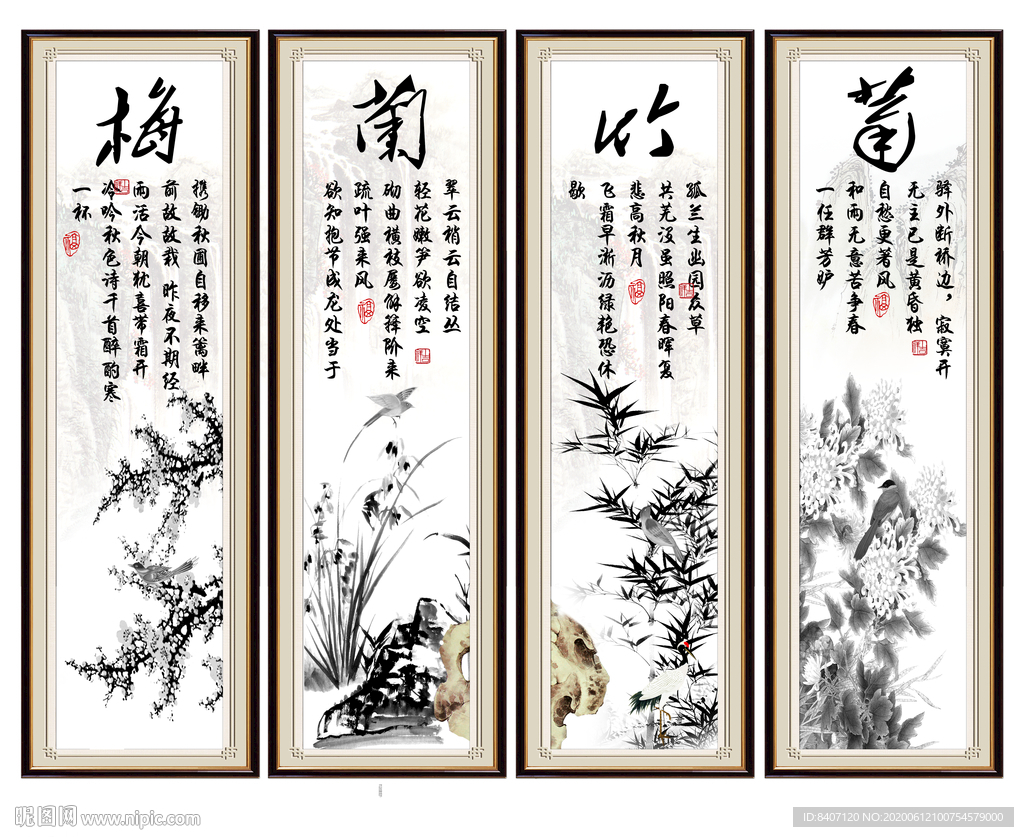 梅
携锄秋圃自移来篱畔
前故故栽 昨夜不期经
雨活今朝犹喜带霜开
冷吟秋色诗千首醉酌寒
一杯
蘭
翠云梢云自结丛
轻花嫩笋欲凌空
砌曲横枝屡解箨阶来
疏叶强来风
欲知抱节成龙处当于
竹
孤兰生幽园众草
共芜没虽照阳春晖复
悲高秋月
飞霜早淅沥绿艳恐休
歇
菊
驿外断桥边，寂寞开
无主已是黄昏独
自愁更著风
和雨无意苦争春
一任群芳妒
昵图网 www.nipic.com
ID:8407120 NO:20200612100754579000